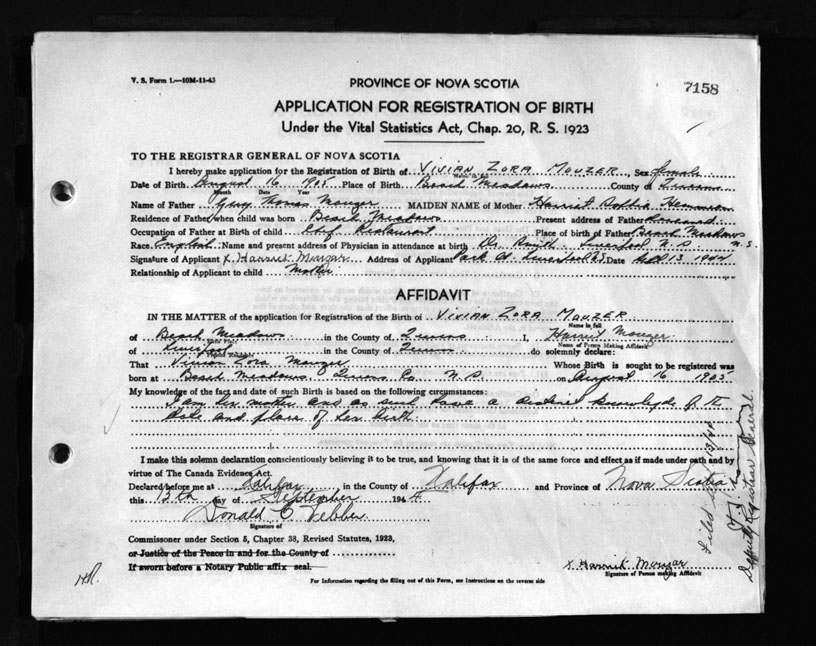 V. S. Form 1.—10M-11-43
7158
PROVINCE OF NOVA SCOTIA
APPLICATION FOR REGISTRATION OF BIRTH
Under the Vital Statistics Act, Chap. 20, R. S. 1923
TO THE REGISTRAR GENERAL OF NOVA SCOTIA
I hereby make application for the Registration of Birth of VIVIAN ZORA MOUZER, Sex female
Name in full
Date of Birth August 16 1905 Place of Birth Beach Meadows County of Queens
Month Date Year
Name of Father Thomas Mouzer MAIDEN NAME of Mother Harriet Sophia
Residence of Father when child was born Beach Meadows Present address of Father Deceased
Occupation of Father at Birth of child Chef Restaurant Place of birth of Father Beach Meadows N. S.
Race English Name and present address of Physician in attendance at birth Dr. Smith Liverpool N. S.
Signature of Applicant x Harriet Mouzar Address of Applicant Park St. Liverpool N.S. Date Sept 13 1944
Relationship of Applicant to child Mother
AFFIDAVIT
IN THE MATTER of the application for Registration of the Birth of VIVIAN ZORA MOUZER
Name in full
of Beach Meadows in the County of Queens I, Harriet Mouzer
Name of Person Making Affidavit
of Liverpool in the County of Queens do solemnly declare:
That Vivian Zora Mouzer Whose Birth is sought to be registered was
born at Beach Meadows Queens Co. N.S. on August 16 1905
My knowledge of the fact and date of such Birth is based on the following circumstances:
I am her mother and as such have a distinct knowledge of the
date and place of her birth
I make this solemn declaration conscientiously believing it to be true, and knowing that it is of the same force and effect as if made under oath and by
virtue of The Canada Evidence Act.
Declared before me at Halifax in the County of Halifax and Province of Nova Scotia
this 13th day of September 1944
Donald C Webber
Signature of
Commissioner under Section 5, Chapter 38, Revised Statutes, 1923,
or Justice of the Peace in and for the County of
If sworn before a Notary Public affix seal.
x Harriet Mouzar
Signature of Person making Affidavit
For Information regarding the filling out of this Form, see Instructions on the reverse side
Filed
Deputy Registrar General